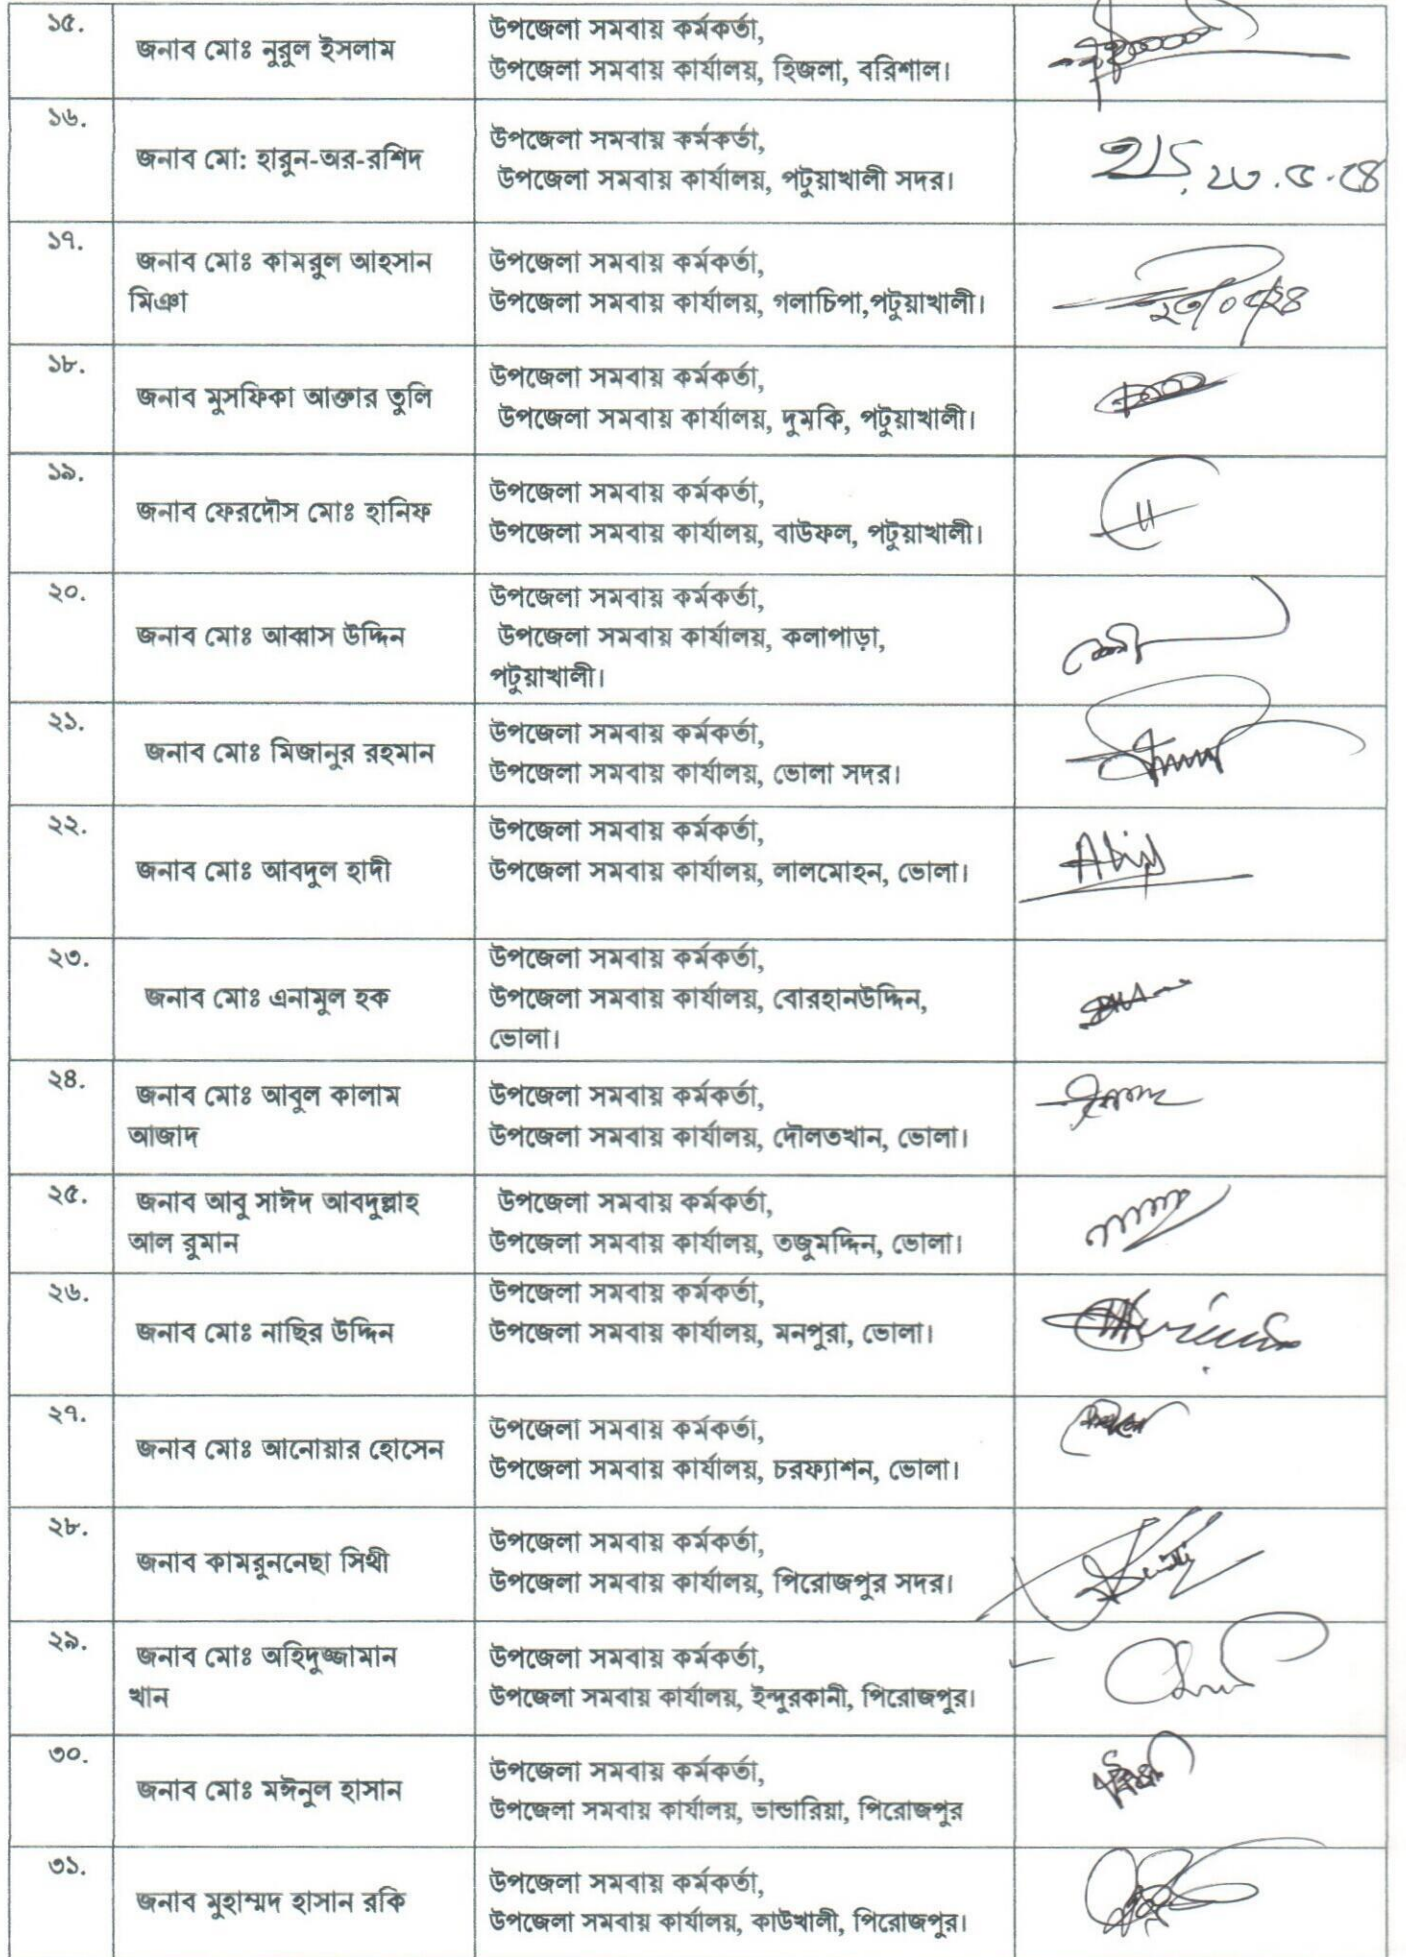 ১৫.
জনাব মোঃ নুরুল ইসলাম
উপজেলা সমবায় কর্মকর্তা,
উপজেলা সমবায় কার্যালয়, হিজলা, বরিশাল।
১৬.
জনাব মো: হারুন-অর-রশিদ
উপজেলা সমবায় কর্মকর্তা,
উপজেলা সমবায় কার্যালয়, পটুয়াখালী সদর।
২৩.৫.২৪
১৭.
জনাব মোঃ কামরুল আহসান
মিঞা
উপজেলা সমবায় কর্মকর্তা,
উপজেলা সমবায় কার্যালয়, গলাচিপা,পটুয়াখালী।
২৩/০৫/২৪
১৮.
জনাব মুসফিকা আক্তার তুলি
উপজেলা সমবায় কর্মকর্তা,
উপজেলা সমবায় কার্যালয়, দুমকি, পটুয়াখালী।
১৯.
জনাব ফেরদৌস মোঃ হানিফ
উপজেলা সমবায় কর্মকর্তা,
উপজেলা সমবায় কার্যালয়, বাউফল, পটুয়াখালী।
২০.
জনাব মোঃ আব্বাস উদ্দিন
উপজেলা সমবায় কর্মকর্তা,
উপজেলা সমবায় কার্যালয়, কলাপাড়া,
পটুয়াখালী।
২১.
জনাব মোঃ মিজানুর রহমান
উপজেলা সমবায় কর্মকর্তা,
উপজেলা সমবায় কার্যালয়, ভোলা সদর।
২২.
জনাব মোঃ আবদুল হাদী
উপজেলা সমবায় কর্মকর্তা,
উপজেলা সমবায় কার্যালয়, লালমোহন, ভোলা।
২৩.
জনাব মোঃ এনামুল হক
উপজেলা সমবায় কর্মকর্তা,
উপজেলা সমবায় কার্যালয়, বোরহানউদ্দিন,
ভোলা।
২৪.
জনাব মোঃ আবুল কালাম
আজাদ
উপজেলা সমবায় কর্মকর্তা,
উপজেলা সমবায় কার্যালয়, দৌলতখান, ভোলা।
২৫.
জনাব আবু সাঈদ আবদুল্লাহ
আল রুমান
উপজেলা সমবায় কর্মকর্তা,
উপজেলা সমবায় কার্যালয়, তজুমদ্দিন, ভোলা।
২৬.
জনাব মোঃ নাছির উদ্দিন
উপজেলা সমবায় কর্মকর্তা,
উপজেলা সমবায় কার্যালয়, মনপুরা, ভোলা।
২৭.
জনাব মোঃ আনোয়ার হোসেন
উপজেলা সমবায় কর্মকর্তা,
উপজেলা সমবায় কার্যালয়, চরফ্যাশন, ভোলা।
২৮.
জনাব কামরুননেছা সিথী
উপজেলা সমবায় কর্মকর্তা,
উপজেলা সমবায় কার্যালয়, পিরোজপুর সদর।
২৯.
জনাব মোঃ অহিদুজ্জামান
খান
উপজেলা সমবায় কর্মকর্তা,
উপজেলা সমবায় কার্যালয়, ইন্দুরকানী, পিরোজপুর।
৩০.
জনাব মোঃ মঈনুল হাসান
উপজেলা সমবায় কর্মকর্তা,
উপজেলা সমবায় কার্যালয়, ভান্ডারিয়া, পিরোজপুর
৩১.
জনাব মুহাম্মদ হাসান রকি
উপজেলা সমবায় কর্মকর্তা,
উপজেলা সমবায় কার্যালয়, কাউখালী, পিরোজপুর।